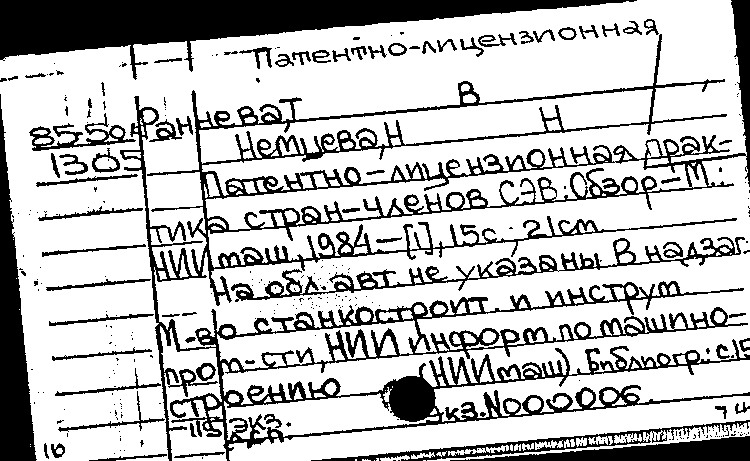 Патентно-лицензионная
85-50.
Раннева, Т В
1305
Немцева, Н Н
Патентно-лицензионная прак-
тика стран-членов СЭВ: Обзор-М.:
НИИмаш, 1984.-[i], 15с.; 21cm.
На обл. авт. не указаны. В надзаг.
М-во станкостроит. и инструм
пром-сти, НИИ информ. по машино-
строению (НИИмаш). Библиогр.: с.15
-115 экз. Экз. N000006.
16